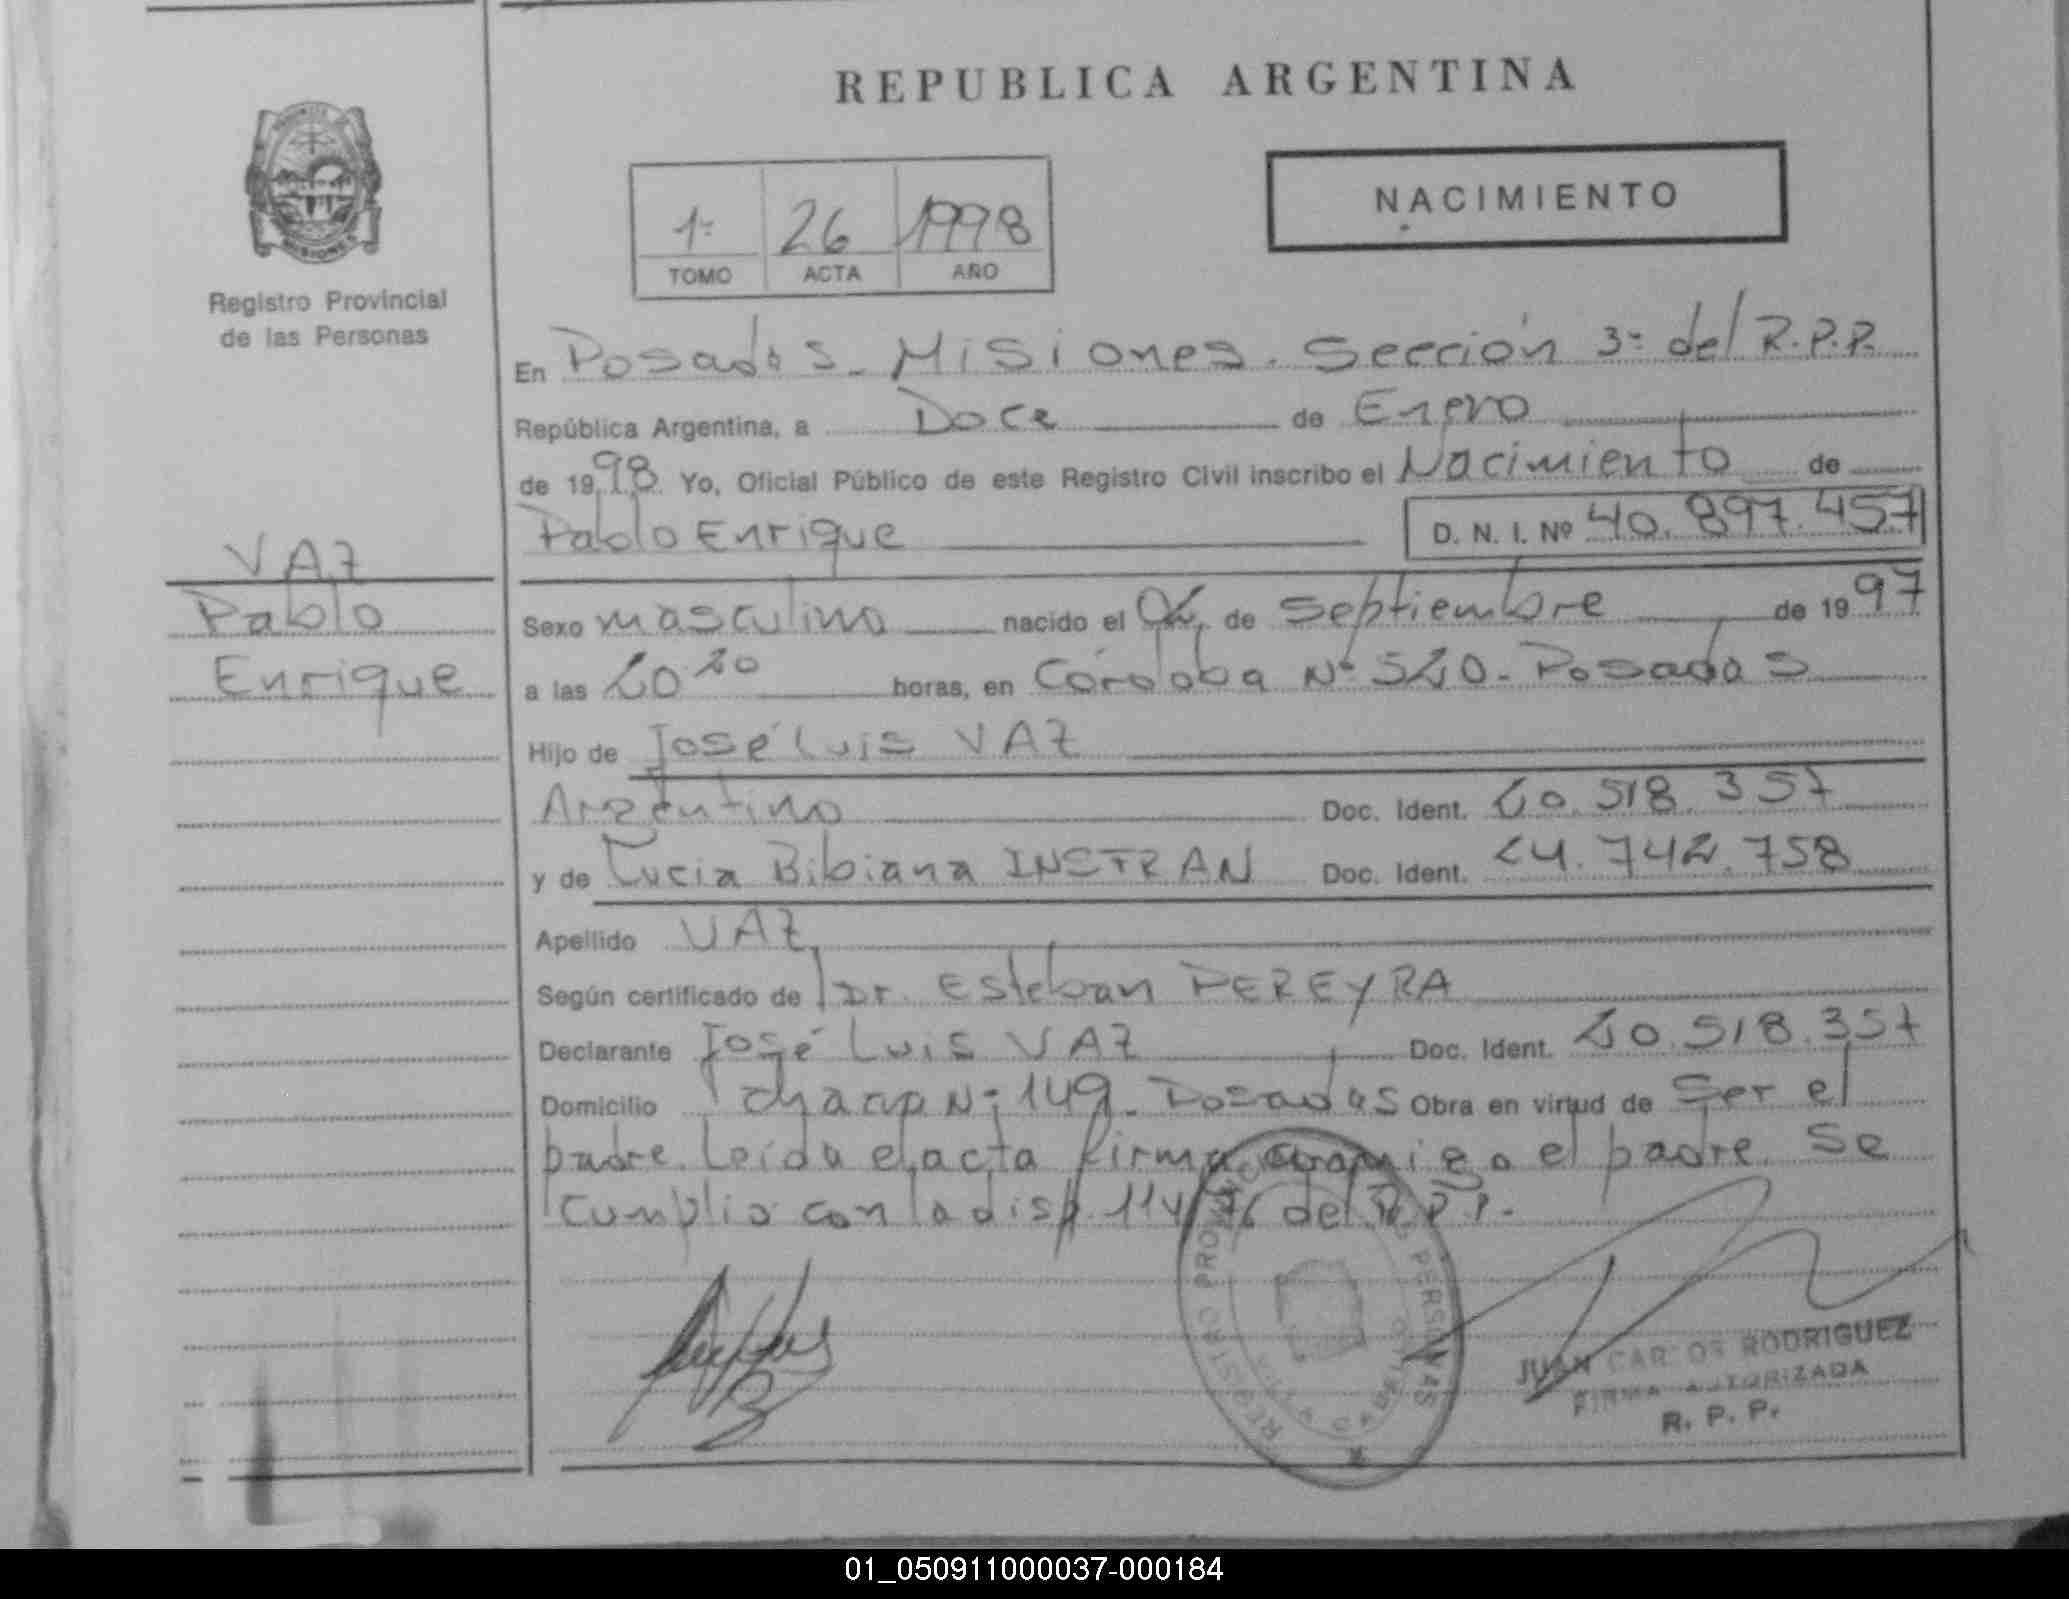 REPUBLICA ARGENTINA
NACIMIENTO
1º 26 1998
TOMO ACTA AÑO
Registro Provincial
de las Personas
En Posadas - Misiones. Sección 3º del R.P.P.
República Argentina, a Doce de Enero
de 1998 Yo, Oficial Público de este Registro Civil inscribo el Nacimiento de
Pablo Enrique D. N. I. Nº 40.897.457
VAZ
Pablo
Enrique
Sexo masculino nacido el de Septiembre de 1997
a las 20 20 horas, en Córdoba Nº 520 - Posadas
Hijo de José Luis VAZ
Argentino Doc. Ident. 20.518.357
y de Lucia Bibiana INSTRAN Doc. Ident. 24.742.758
Apellido VAZ
Según certificado de Dr. Esteban PEREYRA
Declarante José Luis VAZ Doc. Ident. 20.518.357
Domicilio Nº 149 - Posadas Obra en virtud de ser el
padre. Leída el acta firma conmigo el padre. Se
cumplio con la disp. del R.P.P.
REGISTRO PROVINCIAL PERSONAS
JUAN CARLOS RODRIGUEZ
FIRMA AUTORIZADA
R. P. P.
01_050911000037-000184